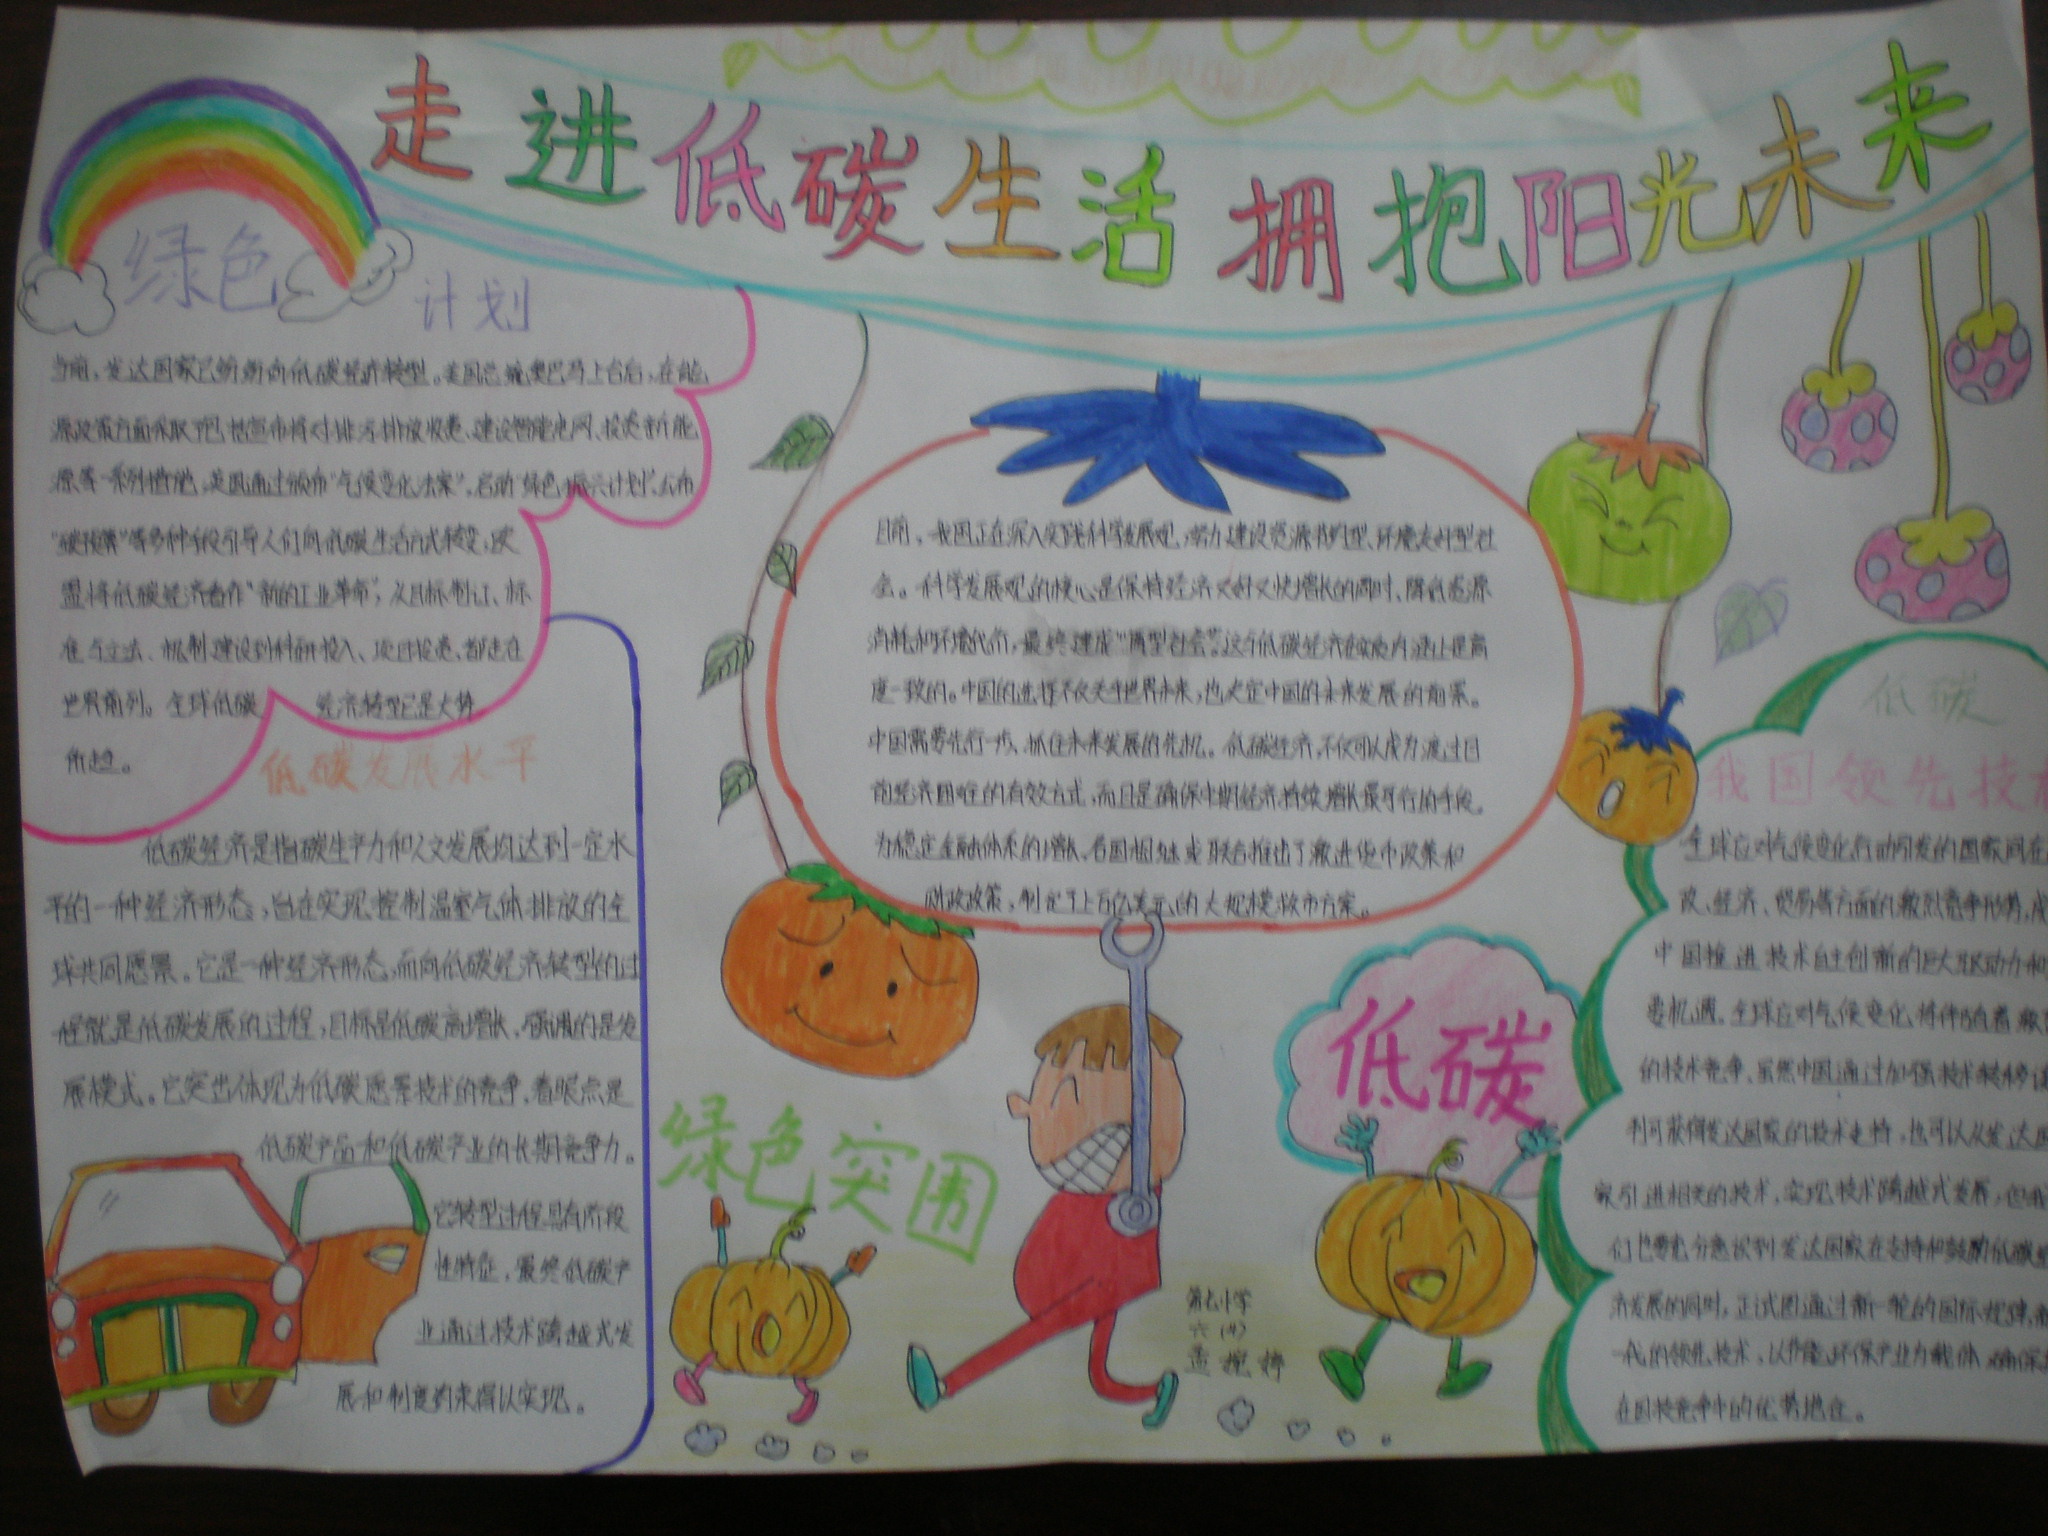 走进低碳生活 拥抱阳光未来
绿色
计划
当前，发达国家已纷纷向低碳经济转型。美国总统奥巴马上台后，在能
源政策方面采取了包括宣布将对排污排放收费、建设智能电网、投资新能
源等一系列措施，英国通过颁布“气候变化法案”，启动“绿色振兴计划”，公布
“碳预算”等多种手段引导人们向低碳生活方式转变，欧
盟将低碳经济看作“新的工业革命”，从目标制订、标
准与立法、机制建设到科研投入、项目投资，都走在
世界前列。全球低碳 经济转型已是大势
所趋。
低碳发展水平
低碳经济是指碳生产力和人文发展均达到一定水
平的一种经济形态，旨在实现控制温室气体排放的全
球共同愿景。它是一种经济形态，而向低碳经济转型的过
程就是低碳发展的过程，目标是低碳高增长，强调的是发
展模式。它突出体现为低碳愿景技术的竞争，着眼点是
低碳产品和低碳产业的长期竞争力。
它转型过程具有阶段
性特征，最终低碳产
业通过技术跨越式发
展和制度约束得以实现。
目前，我国正在深入实践科学发展观，努力建设资源节约型、环境友好型社
会。科学发展观的核心是保持经济又好又快增长的同时，降低资源
消耗和环境代价，最终建成“两型社会”。这与低碳经济在实质内涵上是高
度一致的。中国的选择不仅关乎世界未来，也决定中国的未来发展的前景。
中国需要先行一步，抓住未来发展的先机。低碳经济，不仅可以成为渡过目
前经济困难的有效方式，而且是确保中期经济持续增长最可行的手段。
为稳定金融体系的增长，各国相继或联合推出了激进货币政策和
财政政策，制定了上万亿美元的大规模救市方案。
绿色突围
低碳
第七小学
六（4）
孟婉婷
低碳
我国领先技术
全球应对气候变化行动引发的国家间在
政、经济、贸易等方面的激烈竞争形势，成
中国推进技术自主创新的巨大驱动力和
要机遇。全球应对气候变化，将伴随着激
的技术竞争，虽然中国通过加强技术转移谈
判可获得发达国家的技术支持，也可以从发达国
家引进相关的技术，实现技术跨越式发展，但我
们也要充分意识到发达国家在支持和鼓励低碳经
济发展的同时，正试图通过新一轮的国际规律，新
一代的领先技术，以节能环保产业为载体，确保其
在国技竞争中的优势地位。